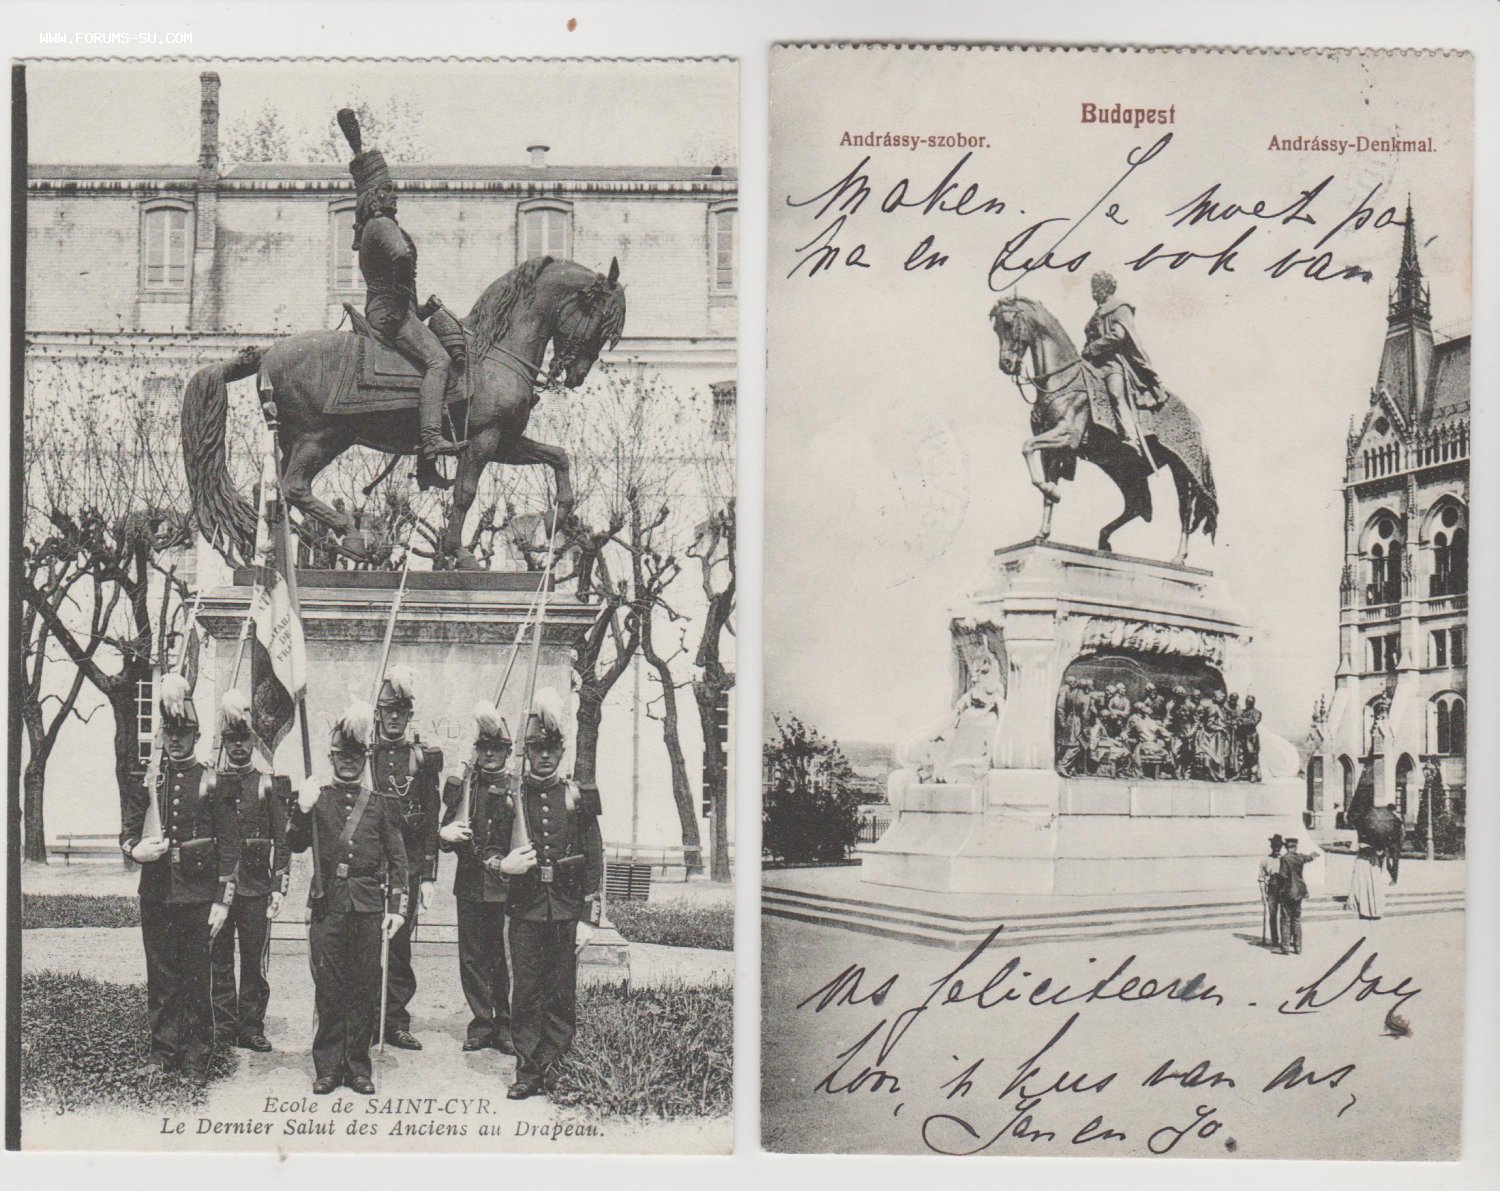 WWW.FORUMS-SU.COM
32
Ecole de SAINT-CYR.
Le Dernier Salut des Anciens au Drapeau.
Budapest
Andrássy-szobor.
Andrássy-Denkmal.
maken. Je moet pa
ma en Zus ook van
ons feliciteeren.
kus van ons,
Jan en Jo.